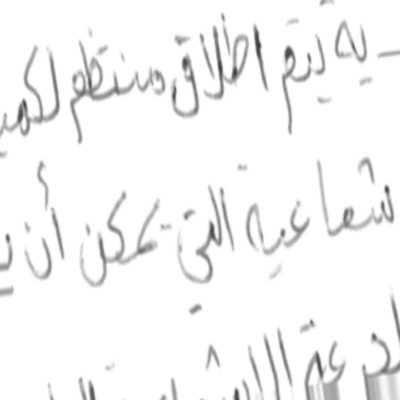 ـية يتم اطلاق منتظم لكميـ
شعاعية التي يمكن أن يـ
لجرعة الاشعاعية